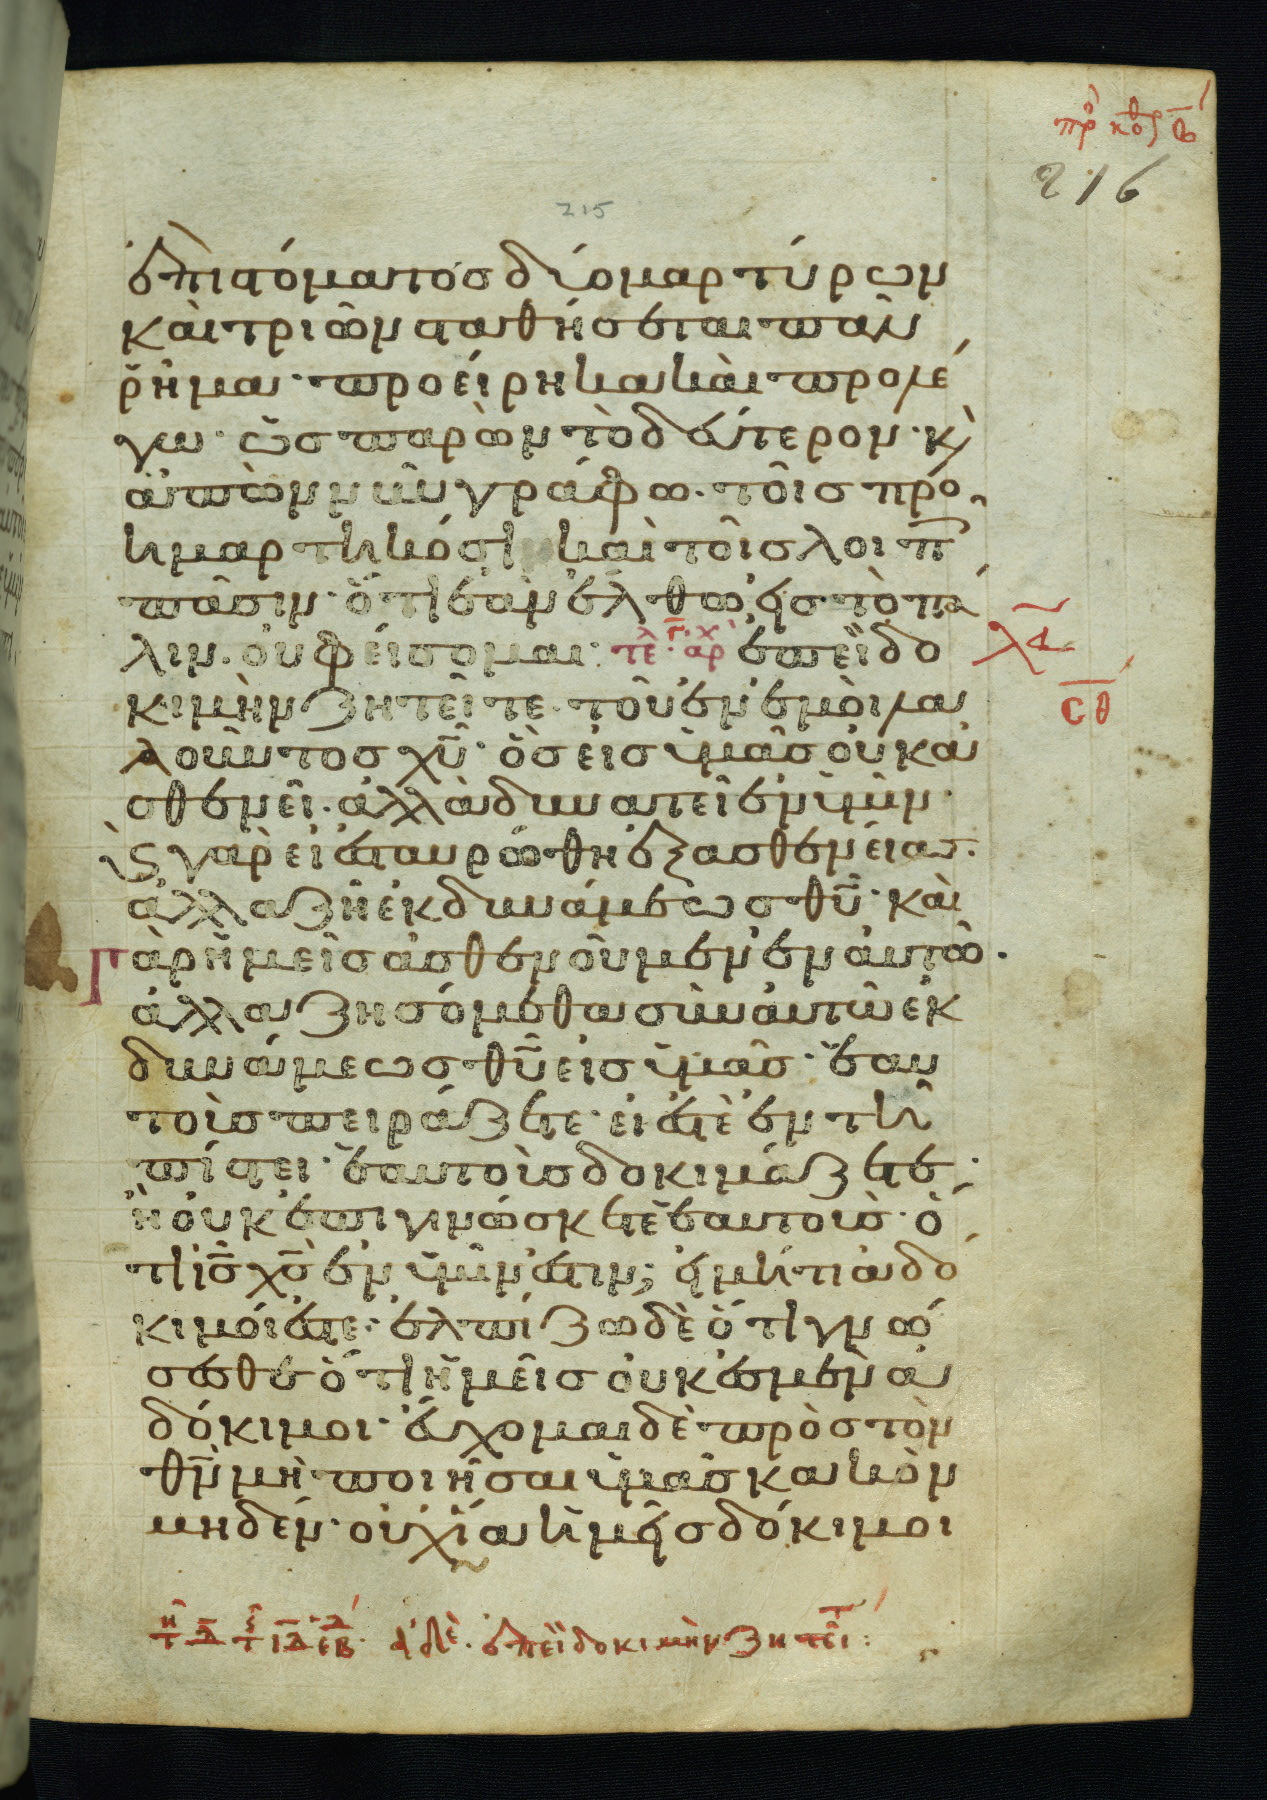 πρ κορ β
216
215
ἐπὶ στόματος δύο μαρτύρων
καὶ τριῶν σταθήσεται πᾶν
ῥῆμα· προείρηκα καὶ προλέ
γω· ὡς παρὼν τὸ δεύτερον· κ
ἀπὼν νῦν γράφω. τοῖς προ
ημαρτηκόσι καὶ τοῖς λοιπ
πᾶσιν· ὅτι ἐὰν ἔλθω εἰς τὸ πά
λιν. οὐ φείσομαι· τε· αρ ἐπεὶ δο
κιμὴν ζητεῖτε τοῦ ἐν ἐμοὶ λα
λοῦντος χυ· ὃς εἰς ὑμᾶς οὐκ ἀ
σθενεῖ. ἀλλὰ δυνατεῖ ἐν ὑμῖν·
κ γὰρ εἰ ἐσταυρώθη ἐξ ἀσθενείας.
ἀλλὰ ζῇ ἐκ δυνάμεως θυ· καὶ
γὰρ ἡμεῖς ἀσθενοῦμεν ἐν αὐτῶ.
ἀλλὰ ζησόμεθα σὺν αὐτῶ ἐκ
δυνάμεως θυ εἰς ὑμᾶς· ἑαυ
τοὺς πειράζετε· εἰ ἐστὲ ἐν τῆ
πίστει· ἑαυτοὺς δοκιμάζετε·
ἢ οὐκ ἐπιγινώσκετε ἑαυτοὺς· ὅ
τι ις χς ἐν ὑμῖν ἐστιν; εἰ μήτι ἀδό
κιμοί ἐστε· ἐλπίζω δὲ ὅτι γνώ
σεσθε ὅτι ἡμεῖς οὐκ ἐσμὲν ἀ
δόκιμοι· εὔχομαι δὲ πρὸς τὸν
θν μὴ ποιῆσαι ὑμᾶς κακὸν
μηδέν· οὐχ ἵνα ἡμεῖς δόκιμοι
σθ
τ Δ τ ΙΔ εβ· ἀδε. ἐπεὶ δοκιμὴν ζητεῖ: